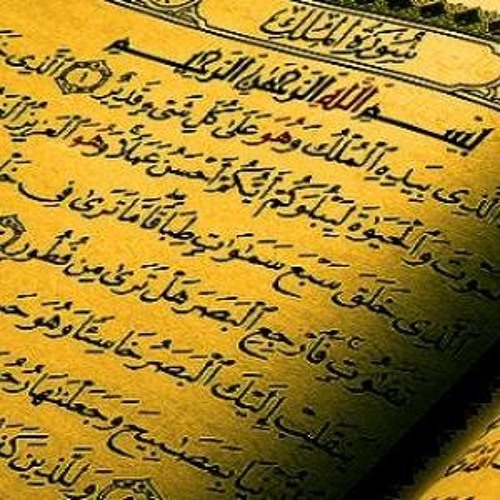 سُورَةُ الْمُلْكِ
بِسْمِ اللَّهِ الرَّحْمَٰنِ الرَّحِيمِ
ٱلَّذِى بِيَدِهِ ٱلْمُلْكُ وَهُوَ عَلَىٰ كُلِّ شَىْءٍ قَدِيرٌ ١ ٱلَّذِى
وَٱلْحَيَوٰةَ لِيَبْلُوَكُمْ أَيُّكُمْ أَحْسَنُ عَمَلًا وَهُوَ ٱلْعَزِيزُ
ٱلَّذِى خَلَقَ سَبْعَ سَمَٰوَٰتٍ طِبَاقًا مَّا تَرَىٰ فِى
تَفَٰوُتٍ فَٱرْجِعِ ٱلْبَصَرَ هَلْ تَرَىٰ مِن فُطُورٍ
يَنقَلِبْ إِلَيْكَ ٱلْبَصَرُ خَاسِئًا وَهُوَ
بِمَصَٰبِيحَ وَجَعَلْنَٰهَا
وَلِلَّذِينَ